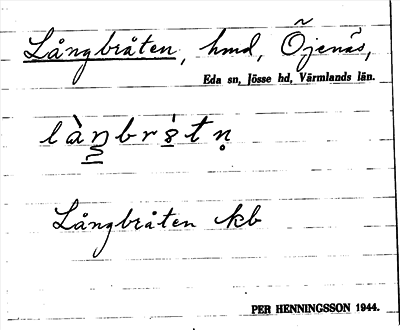 Långbråten, hmd, Õjenäs,
Eda sn, Jösse hd, Värmlands län.
Långbråten kb
PER HENNINGSSON 1944.